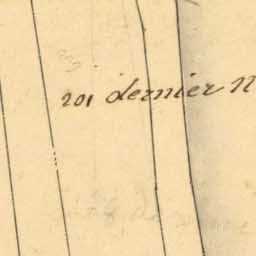 201 dernier N